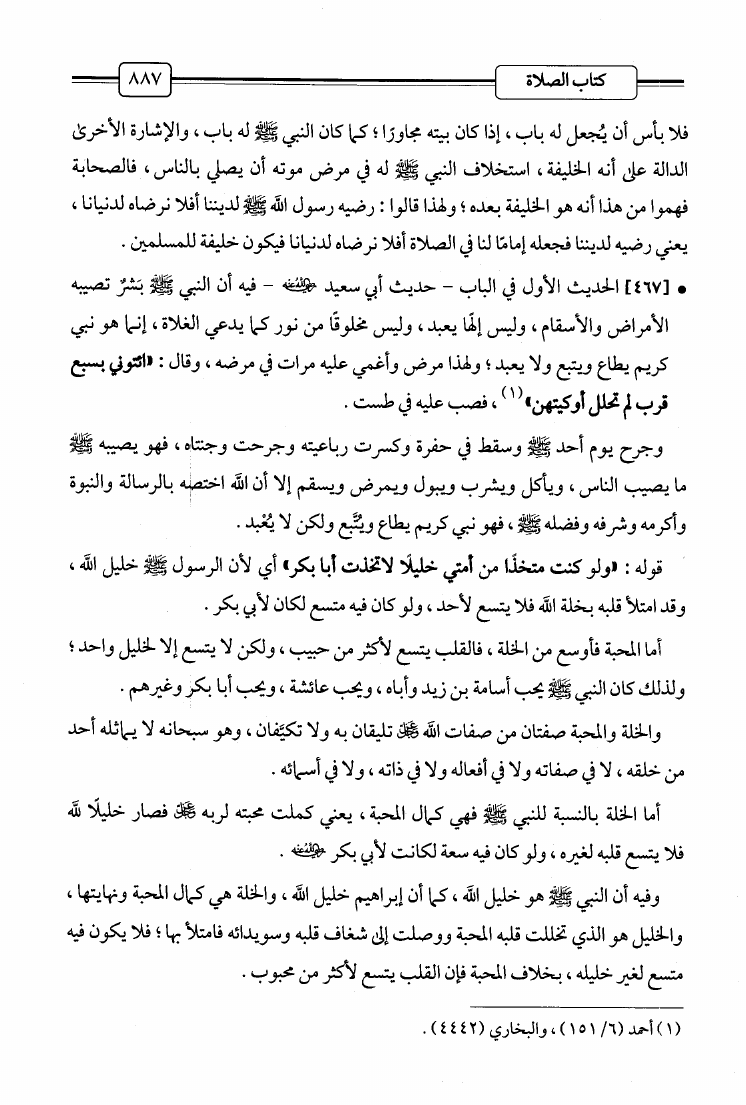 كتاب الصلاة ٨٨٧
فلا بأس أن يُجعل له باب ، إذا كان بيته مجاورًا ؛ كما كان النبي ﷺ له باب ، والإشارة الأخرى
الدالة على أنه الخليفة ، استخلاف النبي ﷺ له في مرض موته أن يصلي بالناس ، فالصحابة
فهموا من هذا أنه هو الخليفة بعده ؛ ولهذا قالوا : رضيه رسول الله ﷺ لديننا أفلا نرضاه لدنيانا ،
يعني رضيه لديننا فجعله إمامًا لنا في الصلاة أفلا نرضاه لدنيانا فيكون خليفة للمسلمين .
• [٤٦٧] الحديث الأول في الباب - حديث أبي سعيد رضي الله عنه - فيه أن النبي ﷺ بَشَرٌ تصيبه
الأمراض والأسقام ، وليس إلهًا يعبد ، وليس مخلوقًا من نور كما يدعي الغلاة ، إنما هو نبي
كريم يطاع ويتبع ولا يعبد ؛ ولهذا مرض وأغمي عليه مرات في مرضه ، وقال : «ائتوني بسبع
قرب لم تحلل أوكيتهن»(١) ، فصب عليه في طست .
وجرح يوم أحد ﷺ وسقط في حفرة وكسرت رباعيته وجرحت وجنتاه ، فهو يصيبه ﷺ
ما يصيب الناس ، ويأكل ويشرب ويبول ويمرض ويسقم إلا أن الله اختصه بالرسالة والنبوة
وأكرمه وشرفه وفضله ﷺ ، فهو نبي كريم يطاع ويُتَّبع ولكن لا يُعْبد .
قوله : «ولو كنت متخذًا من أمتي خليلًا لاتخذت أبا بكر» أي لأن الرسول ﷺ خليل الله ،
وقد امتلأ قلبه بخلة الله فلا يتسع لأحد ، ولو كان فيه متسع لكان لأبي بكر .
أما المحبة فأوسع من الخلة ، فالقلب يتسع لأكثر من حبيب ، ولكن لا يتسع إلا لخليل واحد ؛
ولذلك كان النبي ﷺ يحب أسامة بن زيد وأباه ، ويحب عائشة ، ويحب أبا بكر وغيرهم .
والخلة والمحبة صفتان من صفات الله ﷻ تليقان به ولا تكيَّفان ، وهو سبحانه لا يماثله أحد
من خلقه ، لا في صفاته ولا في أفعاله ولا في ذاته ، ولا في أسمائه .
أما الخلة بالنسبة للنبي ﷺ فهي كمال المحبة ، يعني كملت محبته لربه ﷻ فصار خليلًا لله
فلا يتسع قلبه لغيره ، ولو كان فيه سعة لكانت لأبي بكر رضي الله عنه .
وفيه أن النبي ﷺ هو خليل الله ، كما أن إبراهيم خليل الله ، والخلة هي كمال المحبة ونهايتها ،
والخليل هو الذي تخللت قلبه المحبة ووصلت إلى شغاف قلبه وسويدائه فامتلأ بها ؛ فلا يكون فيه
متسع لغير خليله ، بخلاف المحبة فإن القلب يتسع لأكثر من محبوب .
(١) أحمد (٦/ ١٥١) ، والبخاري (٤٤٤٢) .